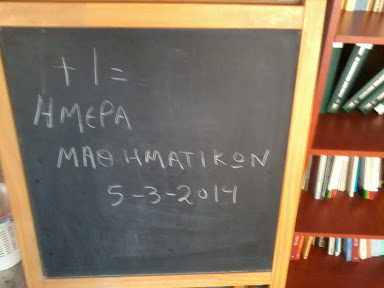 +1=
ΗΜΕΡΑ
ΜΑΘΗΜΑΤΙΚΩΝ
5-3-2014